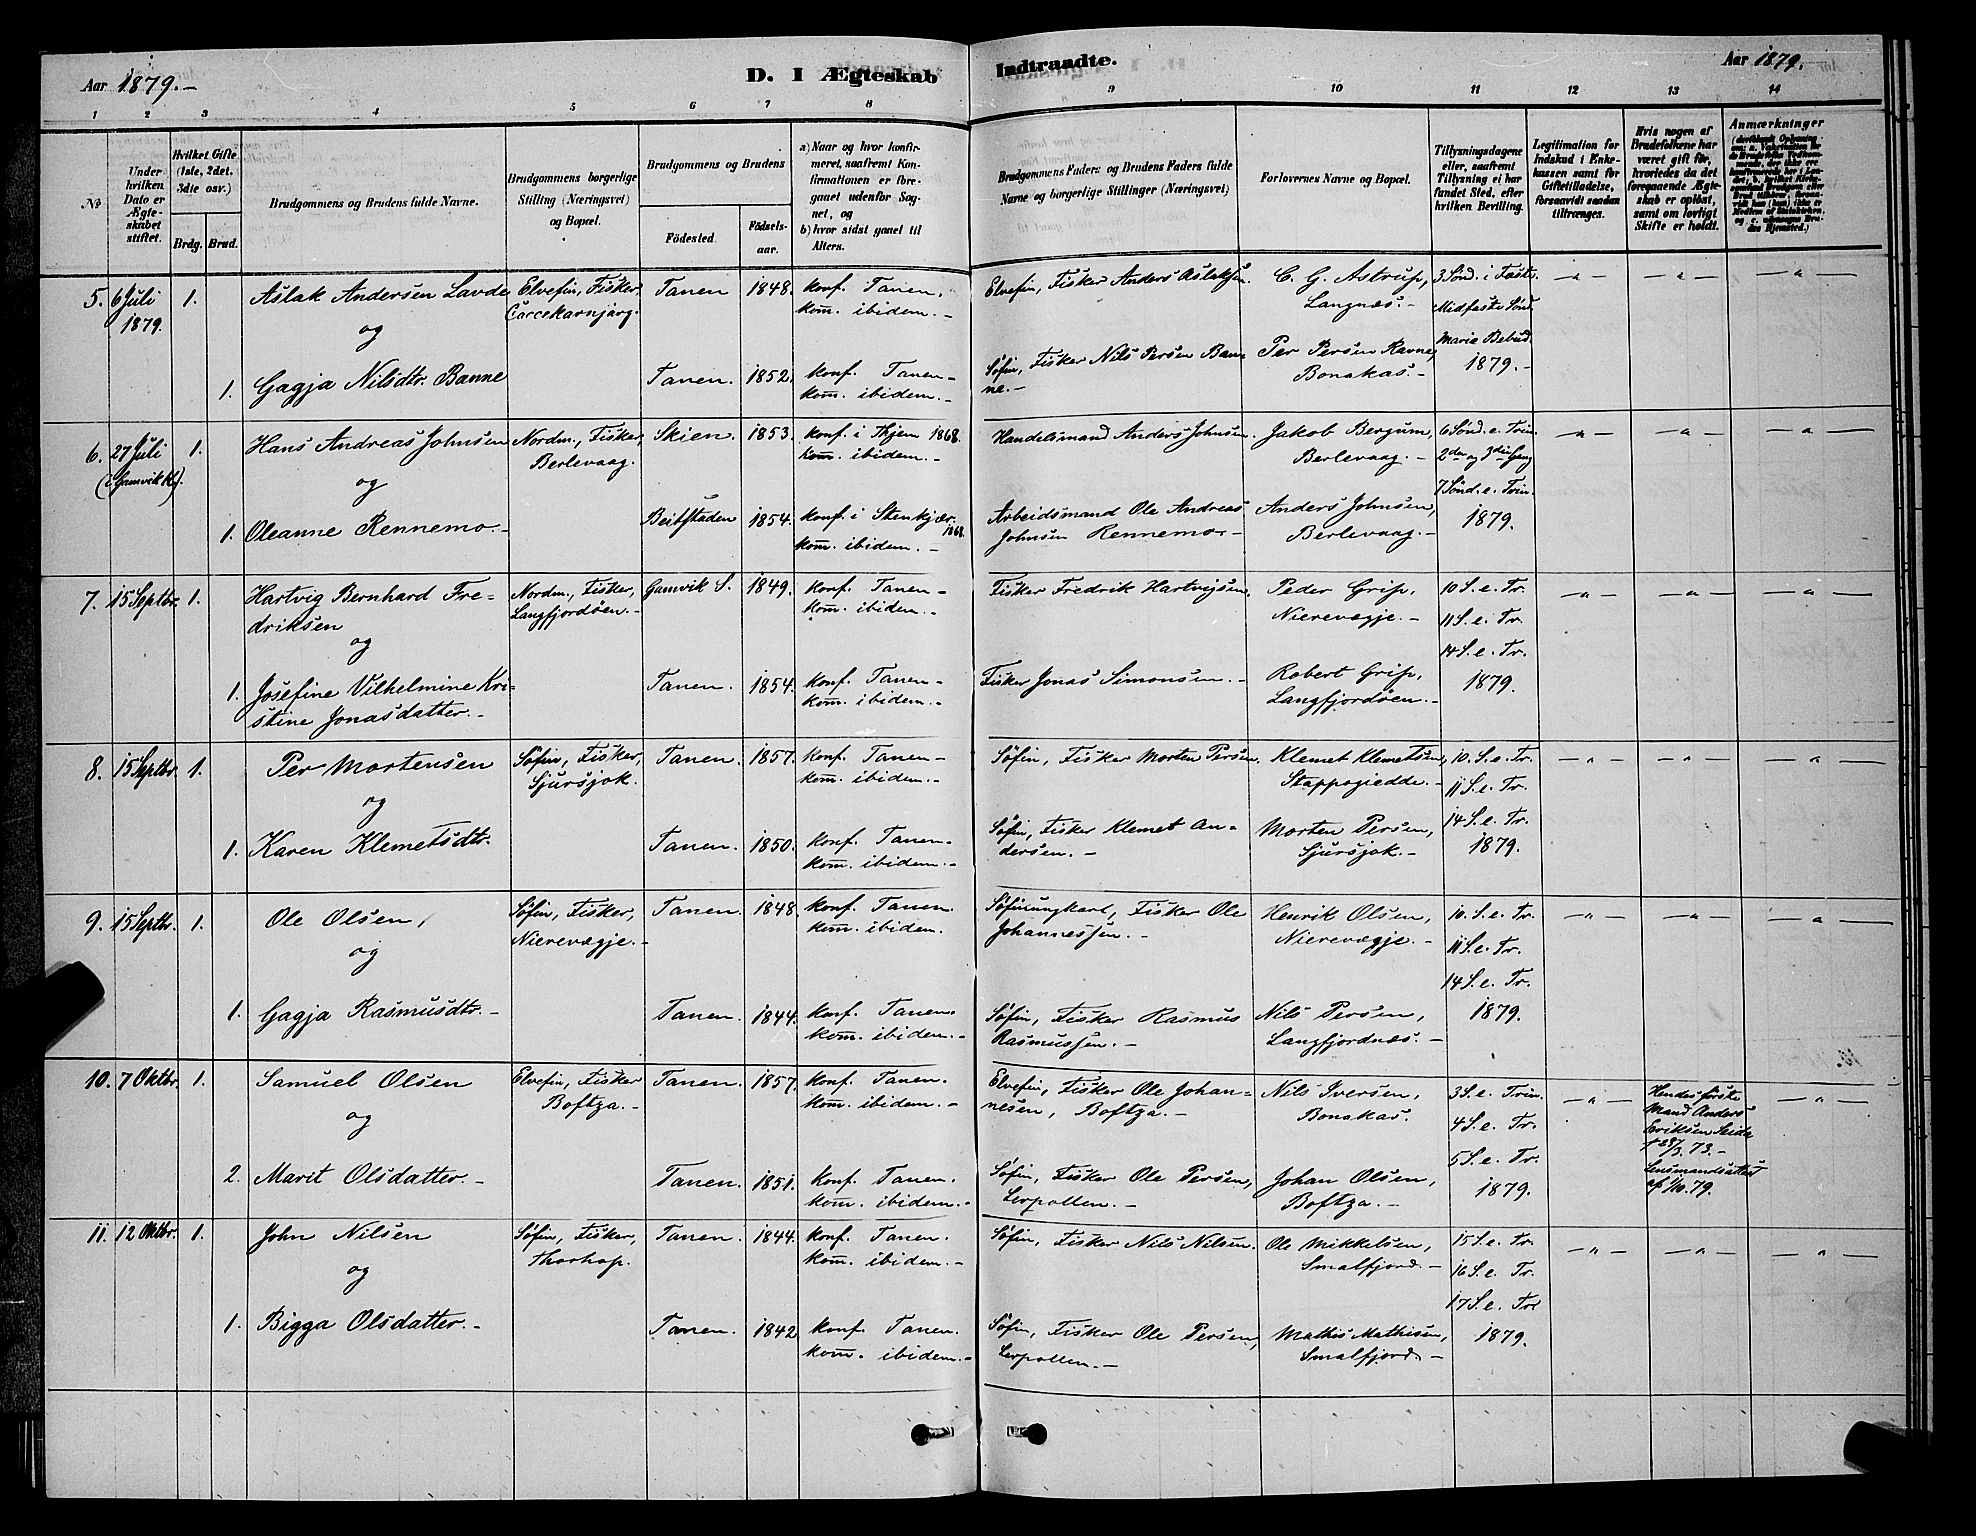 Aar 1879.-
D. I Ægteskab
Indtraadte.
Aar 1879.
1 2 3 4 5 6 7 8 9 10 11 12 13 14
No
Under
hvilken
Dato er
Ægte-
skabet
stiftet.
Hvilket Gifte
(1ste, 2det,
3die osv.)
Brdg. Brud.
Brudgommens og Brudens fulde Navne.
Brudgommens borgerlige
Stilling (Næringsvei)
og Bopæl.
Brudgommens og Brudens
Födested.
Födsels-
aar.
a) Naar og hvor konfir-
meret, saafremt Kon-
firmationen er fore-
gaaet udenfor Sog-
net, og
b) hvor sidst gaaet til
Alters.
Brudgommens Faders og Brudens Faders fulde
Navne og borgerlige Stillinger (Næringsvei)
Forlovernes Navne og Bopæl.
Tillysningsdagene
eller, saafremt
Tillysning ei har
fundet Sted, efter
hvilken Bevilling.
Legitimation for
Indskud i Enke-
kassen samt for
Giftetilladelse,
forsaavidt saadan
tiltrænges.
Hvis nogen af
Brudefolkene har
været gift før,
hvorledes da det
foregaaende Ægte-
skab er oplöst,
samt om lovligt
Skifte er holdt.
Anmærkninger
5. 6 Juli 1. Aslak Andersen Lavde Elvefin, Fisker, Tanen 1848. konf. Tanen. Elvefin, Fisker Anders Aslaksen. C. G. Astrup, 3 Sönd. i Faste
1879. og Carcekarnjarg. kom. ibidem.- Langnæs.- Midfaste Sönd.
1. Gagja Nilsdtr. Banne Tanen. 1852. konf. Tanen- Söfin, Fisker Nils Persen Ban- Per Persen Ravne, Mariæ Bebud.
kom. ibidem.- ne.- Bonakas.- 1879.-
6. 27 Juli 1. Hans Andreas Johnsen Nordm., Fisker, Skien. 1853. konf. i Thjem 1868. Handelsmand Anders Johnsen. Jakob Bergum, 6 Sönd. e. Trin.
(i Gamvik K.). og Berlevaag. kom. ibidem.- Berlevaag.- 2den og 3die Gang
1. Oleanne Rennemo.- Beitstaden 1854. konf. i Stenkjær 1868. Arbeidsmand Ole Andreas Anders Johnsen, 7 Sönd. e. Trin.
kom. ibidem.- Johnsen Rennemo- Berlevaag.- 1879.
7. 15 Septbr. 1. Hartvig Bernhard Fre- Nordm., Fisker, Gamvik S. 1849. konf. Tanen- Fisker Fredrik Hartvigsen. Peder Grip, 10 S. e. Tr.
driksen Langfjordöen.- kom. ibidem.- Nierevægje.- 11 S. e. Tr.
og 14 S. e. Tr.
1. Josefine Vilhelmine Kri- Tanen. 1854. konf. Tanen- Fisker Jonas Simonsen.- Robert Grip, 1879.
stine Jonasdatter.- kom. ibidem.- Langfjordöen.-
8. 15 Septbr. 1. Per Mortensen Söfin, Fisker, Tanen. 1857. konf. Tanen- Söfin, Fisker Morten Persen, Klemet Klemetsen, 10. S. e. Tr.
og Sjursjok. kom. ibidem.- Stappogiedde.- 11 S. e. Tr.
1. Karen Klemetsdtr. Tanen. 1850. konf. Tanen- Söfin, Fisker Klemet An- Morten Persen, 14 S. e. Tr.
kom. ibidem.- dersen.- Sjursjok.- 1879.
9. 15 Septbr. 1. Ole Olsen, Söfin, Fisker, Tanen. 1848. konf. Tanen. Söfinungkarl, Fisker Ole Henrik Olsen, 10. S. e. Tr.
og Nierevægje.- kom. ibidem. Johannessen.- Nierevægje.- 11 S. e. Tr.
14 S. e. Tr.
1. Gagja Rasmusdtr.- Tanen. 1844. konf. Tanen- Söfin, Fisker Rasmus Nils Persen, 1879.
kom. ibidem.- Rasmussen.- Langfjordnæs.-
10. 7 Oktbr. 1. Samuel Olsen Elvefin, Fisker Tanen. 1857. konf. Tanen. Elvefin, Fisker Ole Johan- Nils Iversen, 3 S. e. Trin. Hendes første
og Boftza.- kom. ibidem.- nesen, Boftza.- Bonakas. 4 S. e. Tr. Mand Anders
Eriksen Seida
2. Marit Olsdatter.- Tanen. 1851. konf. Tanen. Söfin, Fisker Ole Persen, Johan Olsen, 5 S. e. Tr. † 28/3 73.-
kom. ibidem.- Lerpollen.- Boftza.- 1879. Lensmandsattest
af 1/10. 79.
11. 12 Oktbr. 1. John Nilsen Söfin, Fisker, Tanen. 1844. konf. Tanen. Söfin, Fisker Nils Nilsen. Ole Mikkelsen, 15 S. e. Tr.
og Thorhop. kom. ibidem.- Smalfjord.- 16 S. e. Tr.
17 S. e. Tr.
1. Bigga Olsdatter.- Tanen. 1842 konf. Tanen. Söfin, Fisker Ole Persen, Mathis Mathisen, 1879.
kom. ibidem.- Lerpollen.- Smalfjord.-